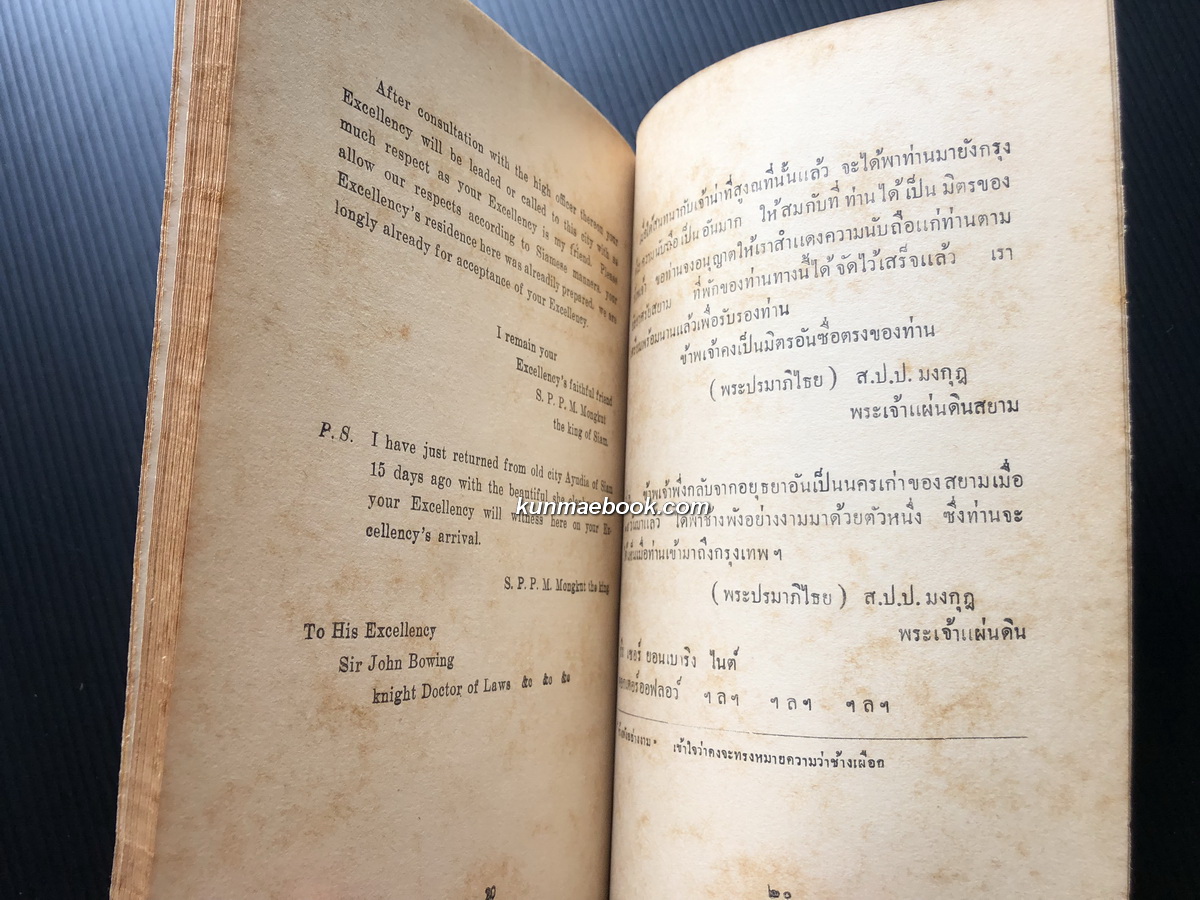 After consultation with the high officer thereon your
Excellency will be leaded or called to this city with as
much respect as your Excellency is my friend. Please
allow our respects according to Siamese manners, your
Excellency's residence here was alreadily prepared. we are
longly already for acceptance of your Excellency.
I remain your
Excellency's faithful friend
S. P. P. M. Mongkut
the king of Siam.
P. S. I have just returned from old city Ayudia of Siam
15 days ago with the beautiful she
your Excellency will witness here on your Ex-
cellency's arrival.
S. P. P. M. Mongkut the king
To His Excellency
Sir John Bowing
knight Doctor of Laws &c &c &c
kunmaebook.com
กับเจ้าน่าที่สูงณที่นั้นแล้ว จะได้พาท่านมายังกรุง
ความนับถือเป็นอันมาก ให้สมกับที่ท่านได้เป็นมิตรของ
ขอท่านจงอนุญาตให้เราสำแดงความนับถือแก่ท่านตาม
สยาม ที่พักของท่านทางนี้ได้จัดไว้เสร็จแล้ว เรา
พร้อมนานแล้วเพื่อรับรองท่าน
ข้าพเจ้าคงเป็นมิตรอันซื่อตรงของท่าน
(พระปรมาภิไธย) ส.ป.ป. มงกุฎ
พระเจ้าแผ่นดินสยาม
ข้าพเจ้าพึ่งกลับจากอยุธยาอันเป็นนครเก่าของสยามเมื่อ
มาแล้ว ได้พาช้างพังอย่างงามมาด้วยตัวหนึ่ง ซึ่งท่านจะ
เมื่อท่านเข้ามาถึงกรุงเทพฯ
(พระปรมาภิไธย) ส.ป.ป. มงกุฎ
พระเจ้าแผ่นดิน
เซอร์ ยอนเบาริง ไนต์
ออฟลอว์ ฯลฯ ฯลฯ ฯลฯ
เข้าใจว่าคงจะทรงหมายความว่าช้างเผือก
๒๐